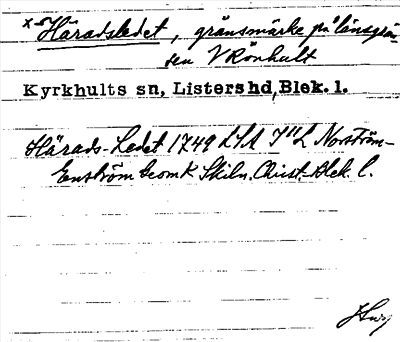 x Häradsledet, gränsmärke på länsgrän-
sen V Rönhult
Kyrkhults sn, Listers hd, Blek. l.
Härads-Ledet 1749 LSA I"L Norström-
Enström Geom K Skiln. Christ-Blek l.